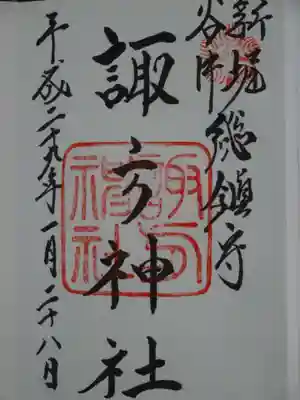 新堀
谷中
総鎮守
諏方神社
諏方神社
平成二十九年一月二十八日